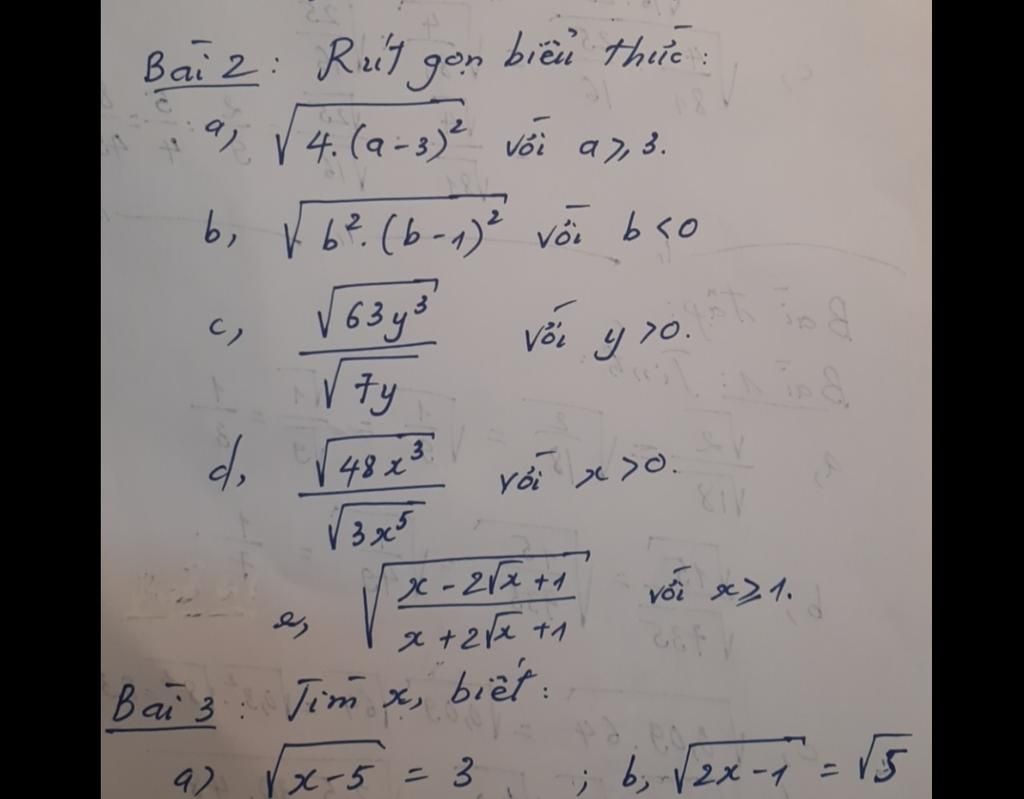 Bài 2: Rút gọn biểu thức:
a, √(4.(a-3)²) với a ⩾ 3.
b, √(b².(b-1)²) với b < 0
c, √(63y³) / √(7y) với y > 0.
d, √(48x³) / √(3x⁵) với x > 0.
e, √((x - 2√x + 1) / (x + 2√x + 1)) với x ⩾ 1.
Bài 3: Tìm x, biết:
a) √(x-5) = 3 ; b, √(2x-1) = √5